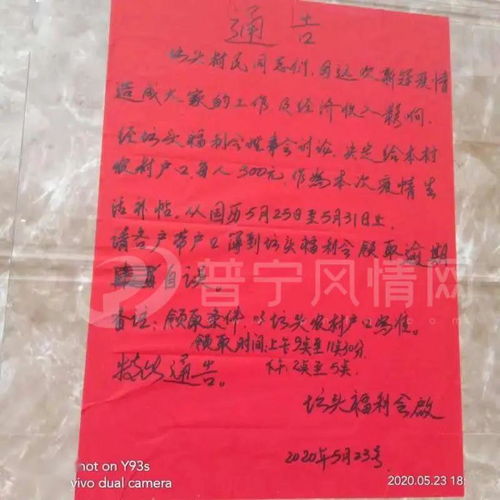 通告
坑头村民同志们,因这次新冠疫情
造成大家的工作及经济收入影响,
经坑头福利会理事会讨论,决定给本村
农村户口每人300元,作为本次疫情生
活补帖,从国历5月25日至5月31日止
请各户带户口簿到坑头福利会领取逾期
自误。
备注:领取条件,以坑头农村户口为准。
领取时间:上午9点至11点30分
下午:2点至5点
特此通告。
坑头福利会启
2020年5月23号
普宁风情网
hot on Y93s
vivo dual camera
2020.05.23 18